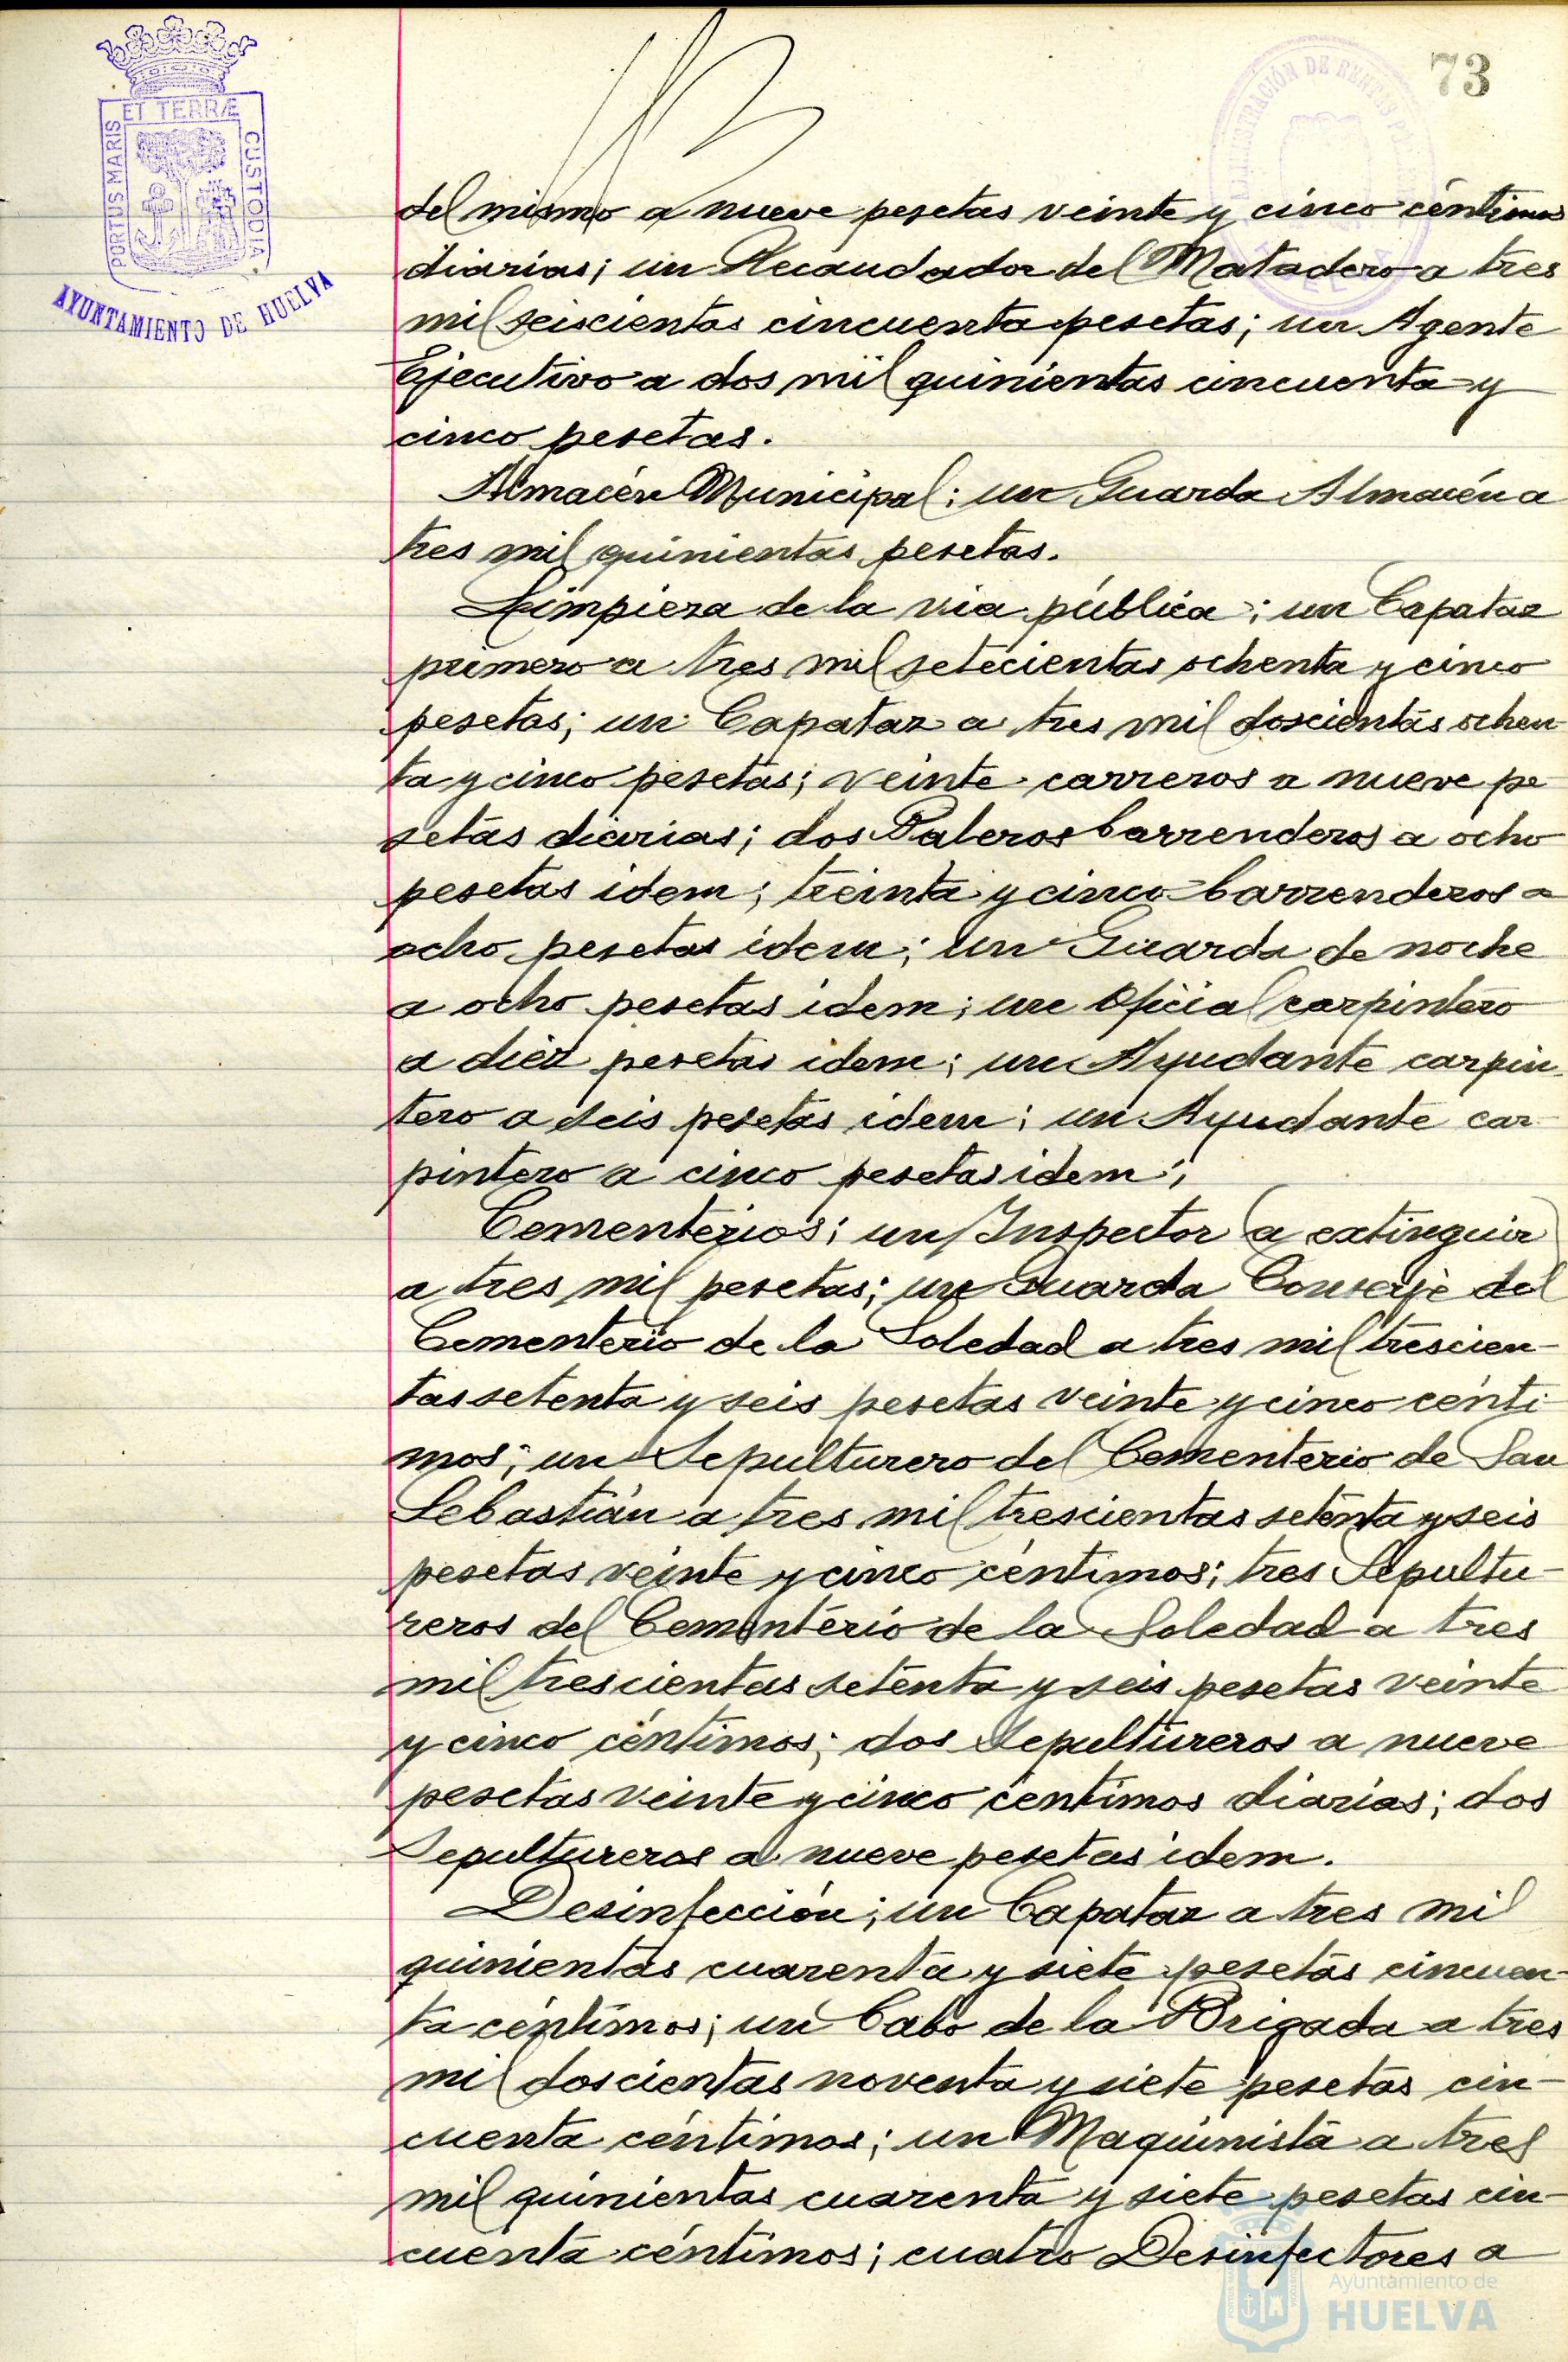 73
PORTUS MARIS
ET TERRÆ
CUSTODIA
AYUNTAMIENTO DE HUELVA
ADMINISTRACIÓN DE RENTAS
HUELVA
del mismo a nueve pesetas veinte y cinco céntimos
diarias; un Recaudador del Matadero a tres
mil seiscientas cincuenta pesetas; un Agente
Ejecutivo a dos mil quinientas cincuenta y
cinco pesetas.
Almacén Municipal; un Guarda Almacén a
tres mil quinientas pesetas.
Limpieza de la via pública; un Capataz
primero a tres mil setecientas ochenta y cinco
pesetas; un Capataz a tres mil doscientas ochen-
ta y cinco pesetas; veinte carreros a nueve pe-
setas diarias; dos Paleros barrenderos a ocho
pesetas idem; treinta y cinco barrenderos a
ocho pesetas idem; un Guarda de noche
a ocho pesetas idem; un Oficial carpintero
a diez pesetas idem; un Ayudante carpin-
tero a seis pesetas idem; un Ayudante car-
pintero a cinco pesetas idem;
Cementerios; un Inspector (a extinguir)
a tres mil pesetas; un Guarda Conserje del
Cementerio de la Soledad a tres mil trescien-
tas setenta y seis pesetas veinte y cinco cénti-
mos; un Sepulturero del Cementerio de San
Sebastián a tres mil trescientas setenta y seis
pesetas veinte y cinco céntimos; tres Sepultu-
reros del Cementerio de la Soledad a tres
mil trescientas setenta y seis pesetas veinte
y cinco céntimos; dos Sepultureros a nueve
pesetas veinte y cinco céntimos diarias; dos
Sepultureros a nueve pesetas idem.
Desinfección; un Capataz a tres mil
quinientas cuarenta y siete pesetas cincuen-
ta céntimos; un Cabo de la Brigada a tres
mil doscientas noventa y siete pesetas cin-
cuenta céntimos; un Maquinista a tres
mil quinientas cuarenta y siete pesetas cin-
cuenta céntimos; cuatro Desinfectores a
Ayuntamiento de
HUELVA